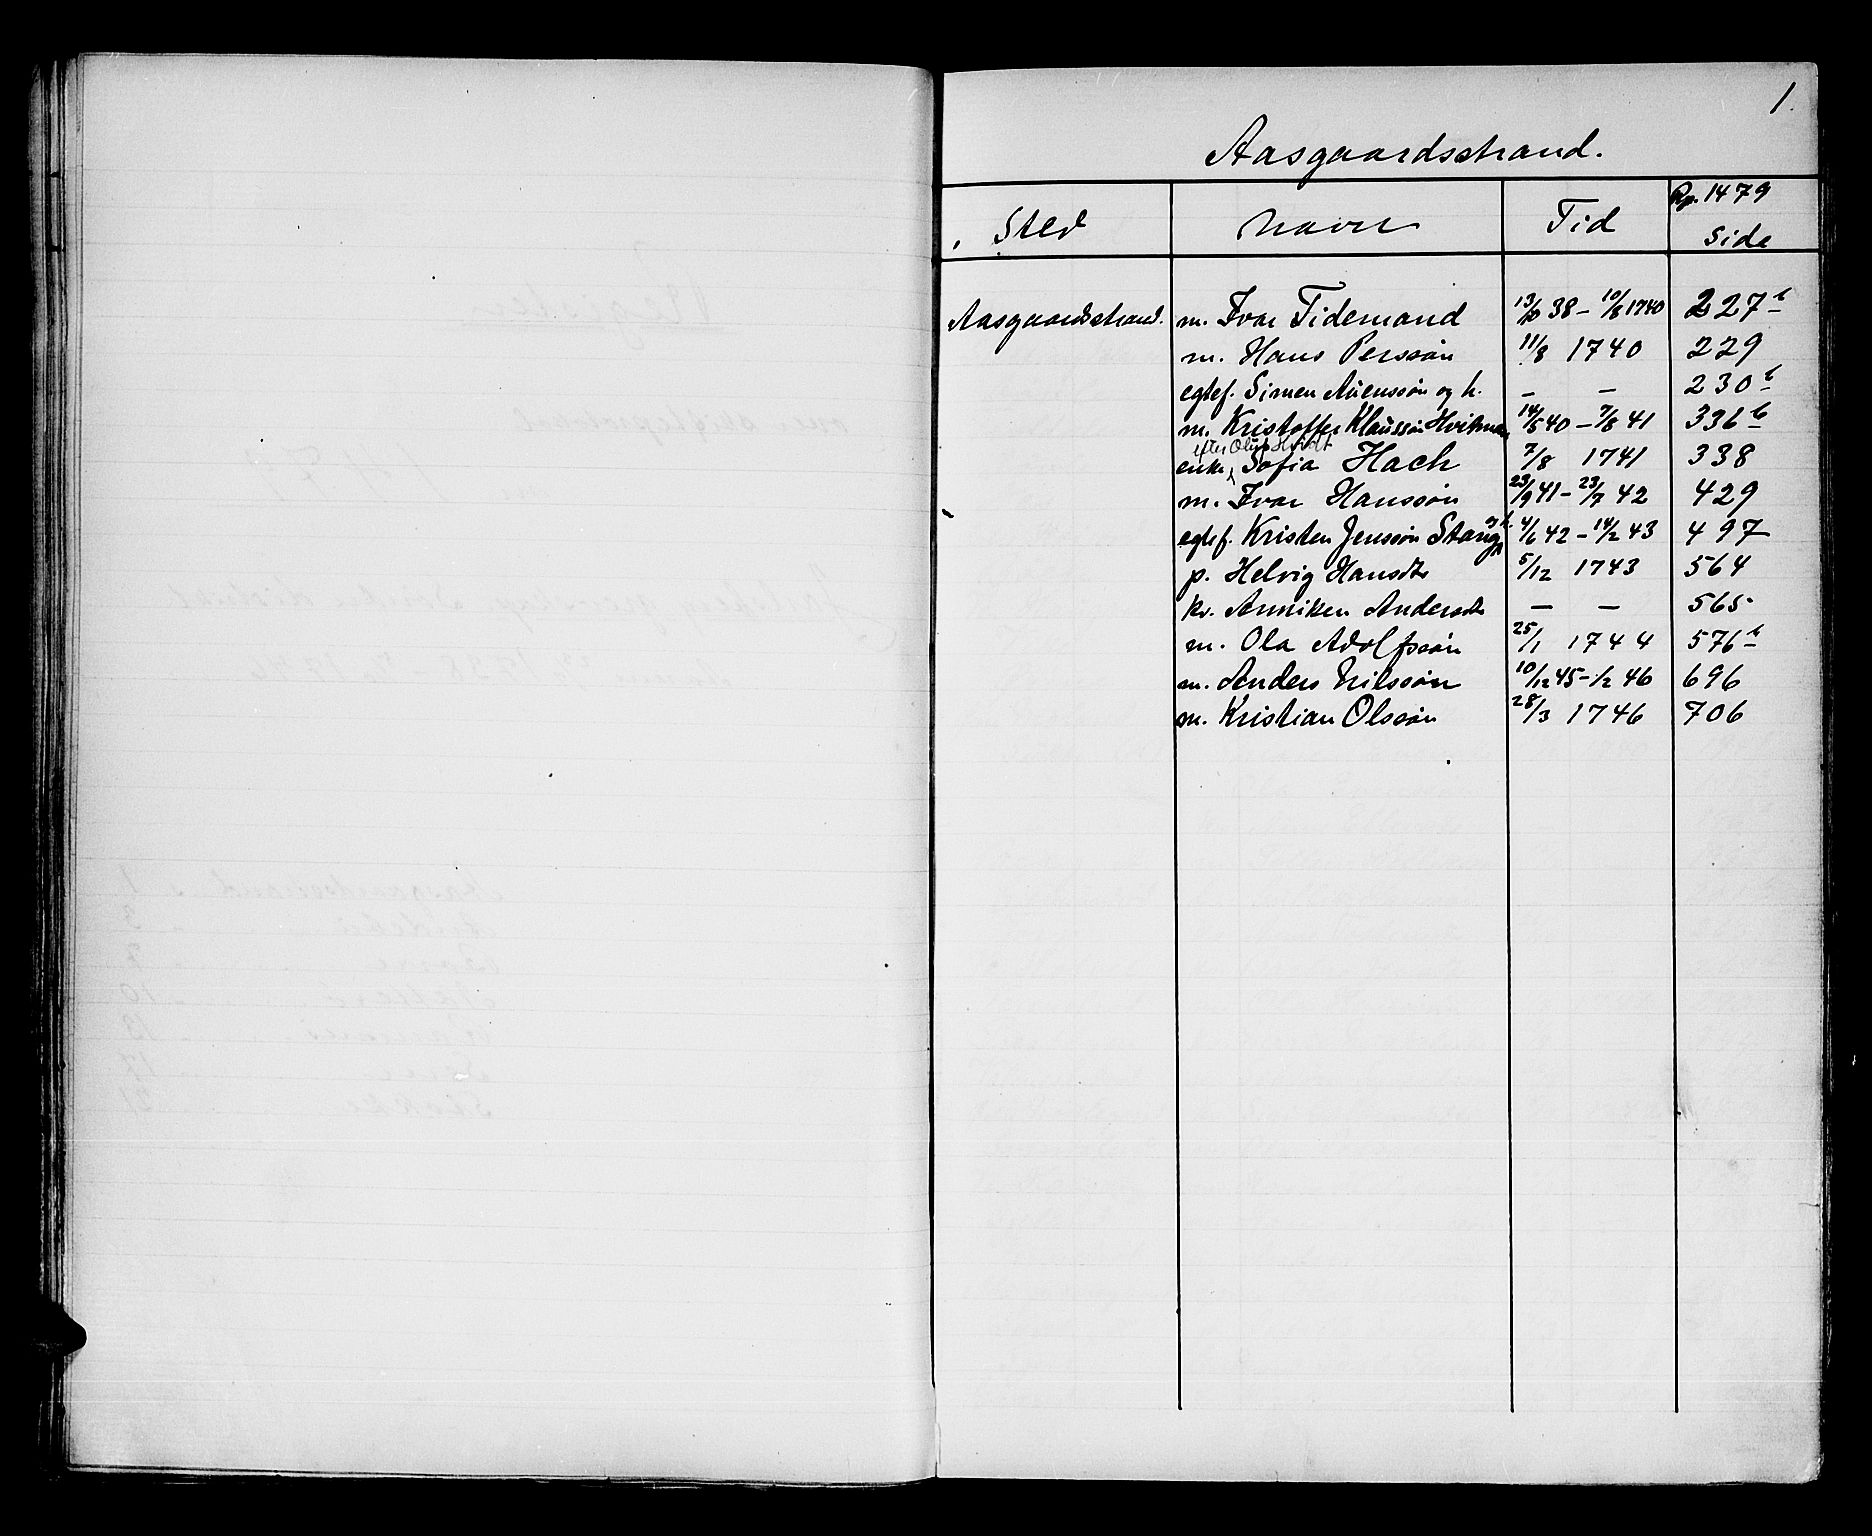 1.
Aasgaardsstrand.
Sted Navn Tid Rp. 1479 Side
Aasgaardsstrand. m. Ivar Tidemand 13/10 38 – 10/8 1740 227 b
m. Hans Perssøn 11/8 1740 229
egtef. Simen Auenssøn og h. – – 230 b
m. Kristoffer Klaussøn Hvitman 14/5 40 – 7/8 41 336 b
efter Oluf Hvidt
enke Sofia Hach 7/8 1741 338
m. Ivar Hanssøn 23/9 41 – 23/7 42 429
egtef. Kristen Jenssøn Stang og h. 4/6 42 – 14/2 43 497
p. Helvig Hansdtr 5/12 1743 564
kv. Anniken Andersdtr – – 565
m. Ola Adolfssøn 25/1 1744 576 b
m. Anders Nilssøn 10/12 45 – 1/2 46 696
m. Kristian Olssøn 28/3 1746 706